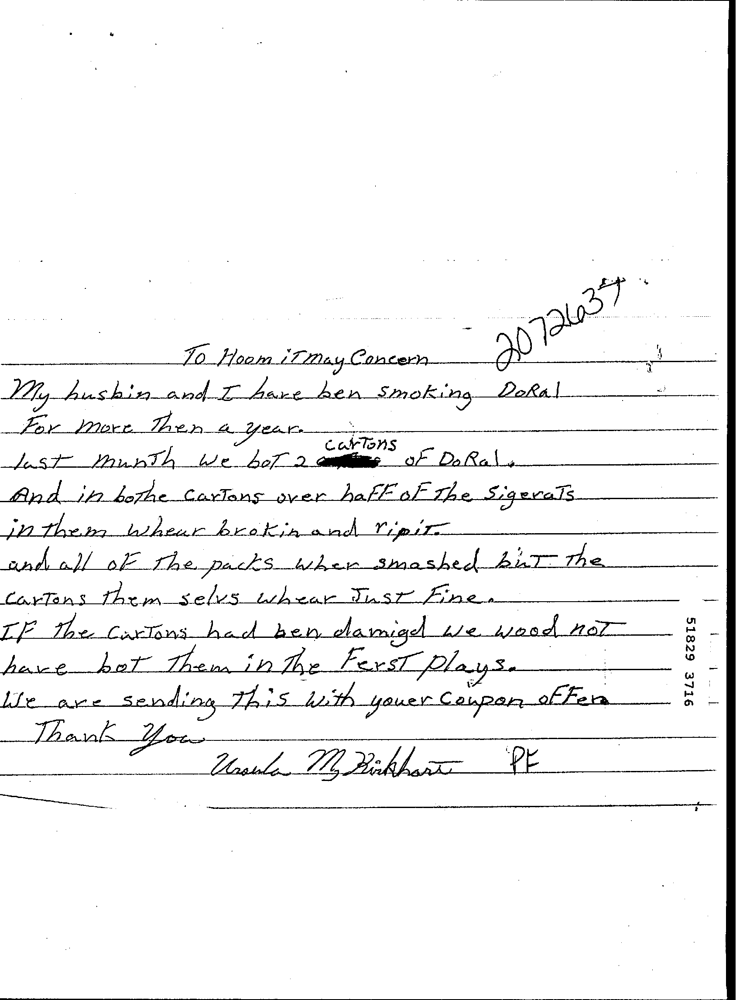 20726237
To Hoom iT may Concern
My husbin and I have ben smoking DoRal
For more Then a year.
last munTh we boT 2 carTons of DoRal.
And in bothe CarTons over haFF oF The SigeraTs
in them whear brokin and ripiT.
and all oF The packs wher smashed buT The
CarTons Them selvs whear JusT Fine.
IF The CarTons had ben damigd we wood noT
have boT Them in The FersT plays.
We are sending This with youer Coupon oFFer
Thank You
Ursula M Kirkhart PF
51829 3716